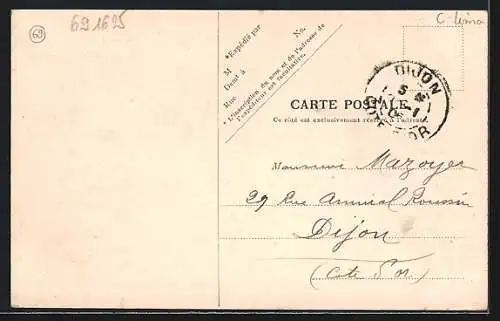 69
691625
C-lima
*Expédié par
M
Demt à
Rue
No.
* L'inscription du nom et de l'adresse de
l'expéditeur est facultative.
DIJON
COTE D'OR
CARTE POSTALE
Ce côté est exclusivement réservé à l'adresse.
Monsieur Mazoyer
29 Rue Amiral Roussin
Dijon
(Cote d'Or)